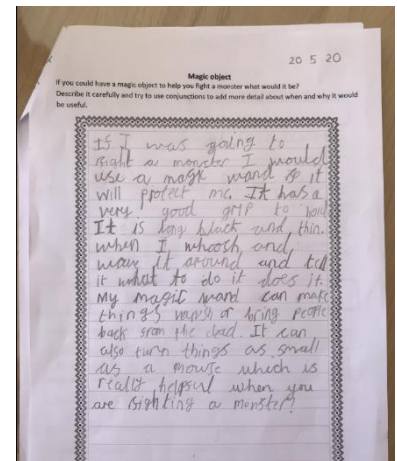 20 5 20
Magic object
If you could have a magic object to help you fight a monster what would it be?
Describe it carefully and try to use conjunctions to add more detail about when and why it would
be useful.
If I was going to
fight a monster I would
use a magic wand it
will protect me. It has a
very good grip to hold
It is long black and thin.
when I whoosh and
wave it around and tell
it what to do it does it.
My magic wand can make
things vanish or bring people
back from the dead. It can
also turn things as small
as a mouse which is
really helpful when you
are fighting a monster!